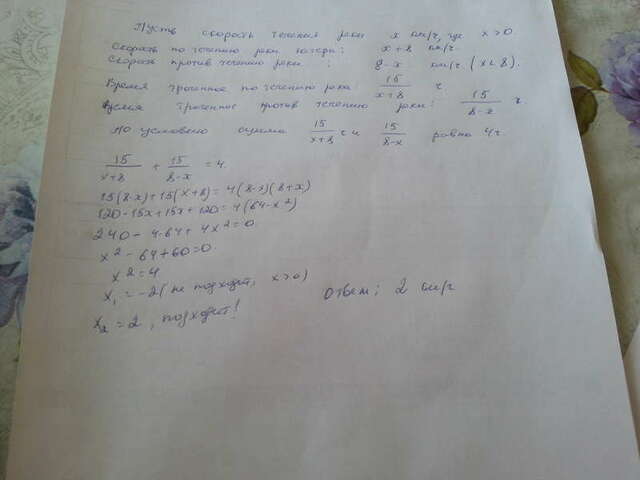 Пусть скорость течения реки x км/ч, где x>0.
Скорость по течению реки катера: x+8 км/ч.
Скорость против течения реки : 8-x км/ч. (x<8).
Время троченное по течению реки: 15/(x+8) ч
Время троченное против течению реки: 15/(8-x) ч.
По условию сумма 15/(x+8) ч и 15/(8-x) равно 4ч.
15/(x+8) + 15/(8-x) = 4.
15(8-x)+15(x+8)=4(8-x)(8+x)
120-15x+15x+120=4(64-x²)
240-4·64+4x²=0.
x²-64+60=0.
x²=4
x₁=-2 (не подходит, x>0)
x₂=2, подходит!
Ответ: 2 км/ч